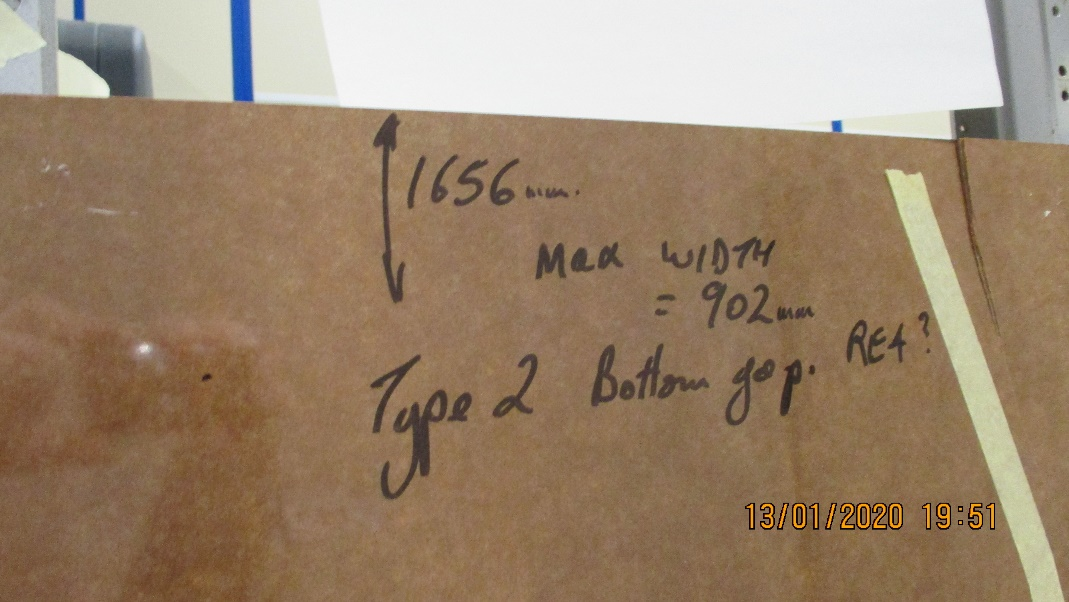 1656mm.
Max WIDTH
= 902mm
Type 2 Bottom gap. RE4?
13/01/2020 19:51